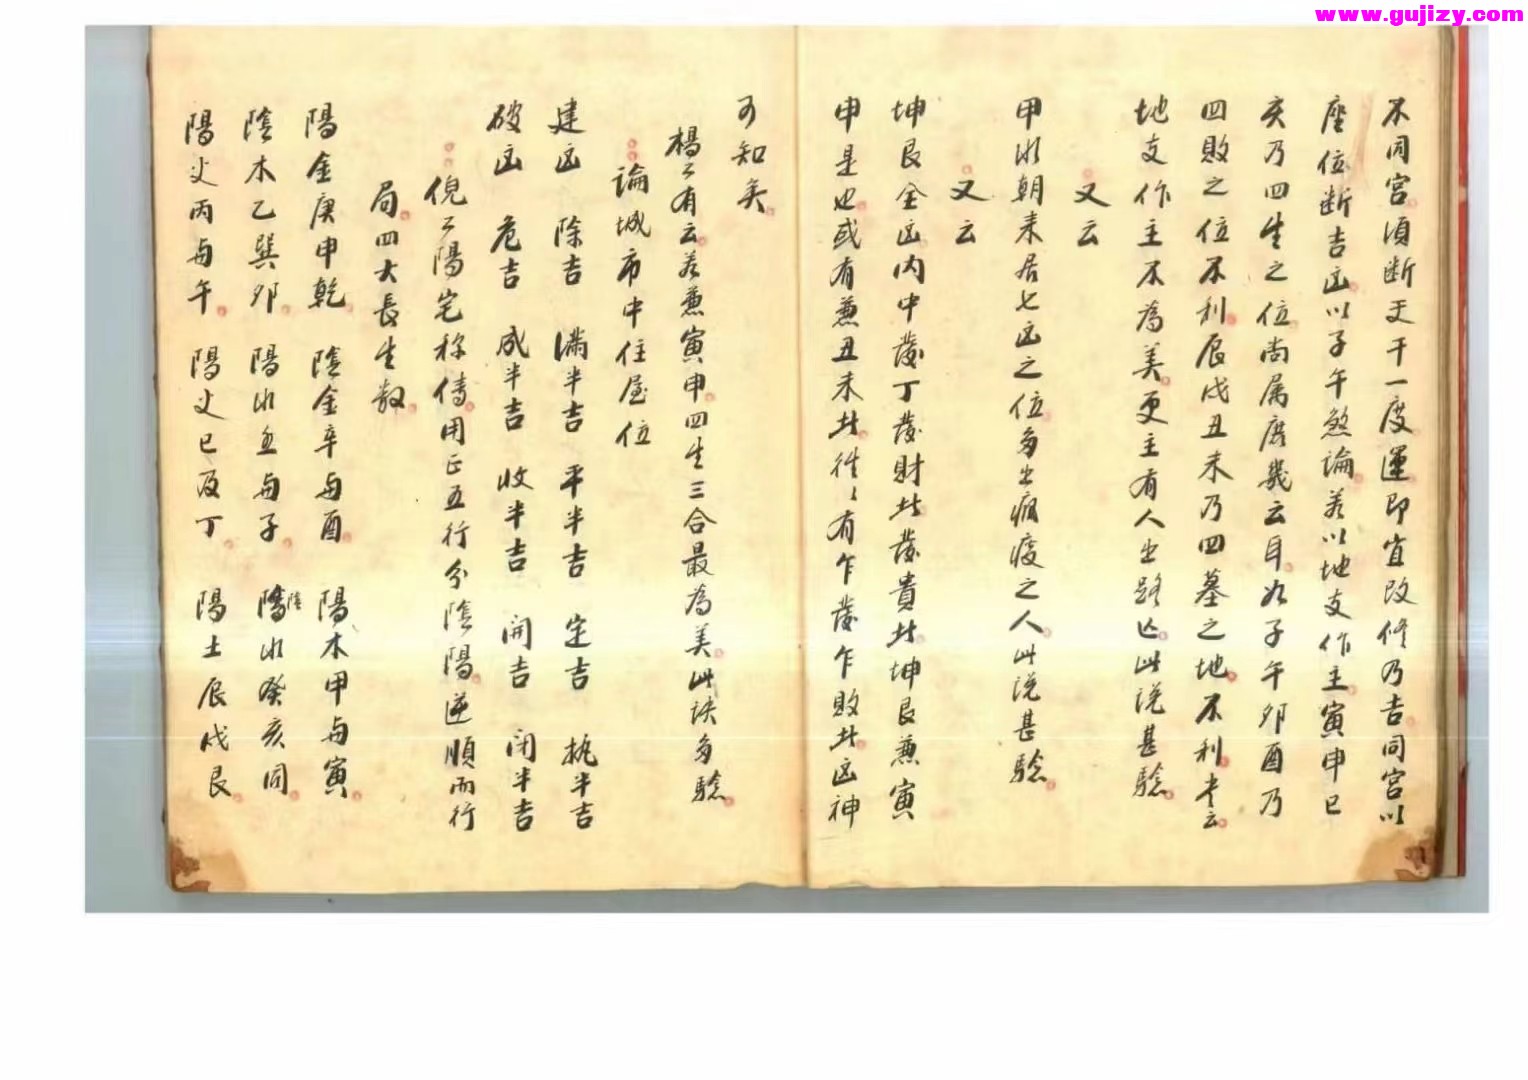 www.gujizy.com
不同宮須断天干一度運即宜改修乃吉同宮以
座位断吉凶以子午煞論若以地支作主寅申巳
亥乃四生之位尚属庶幾云耳如子午卯酉乃
四敗之位不利辰戌丑未乃四墓之地不利書云
地支作主不為美更主有人出路亡此説甚驗
又云
甲水朝来居七凶之位多出瘋疲之人此説甚驗
又云
坤艮全凶内中發丁發財者發貴者坤艮兼寅
申是也或有兼丑未者徃々有乍發乍敗者凶神
可知矣
楊公有云若兼寅申四生三合最為美此訣多驗
論城市中住屋位
建凶 除吉 滿半吉 平半吉 定吉 执半吉
破凶 危吉 成半吉 收半吉 開吉 闭半吉
倪公陽宅称傳用正五行分陰陽逆順而行
局四大長生数
陽金庚申乾 陰金辛与酉 陽木甲与寅
陰木乙巽卯 陽水壬与子 陰水癸亥同
陽火丙与午 陽火巳及丁 陽土辰戌艮